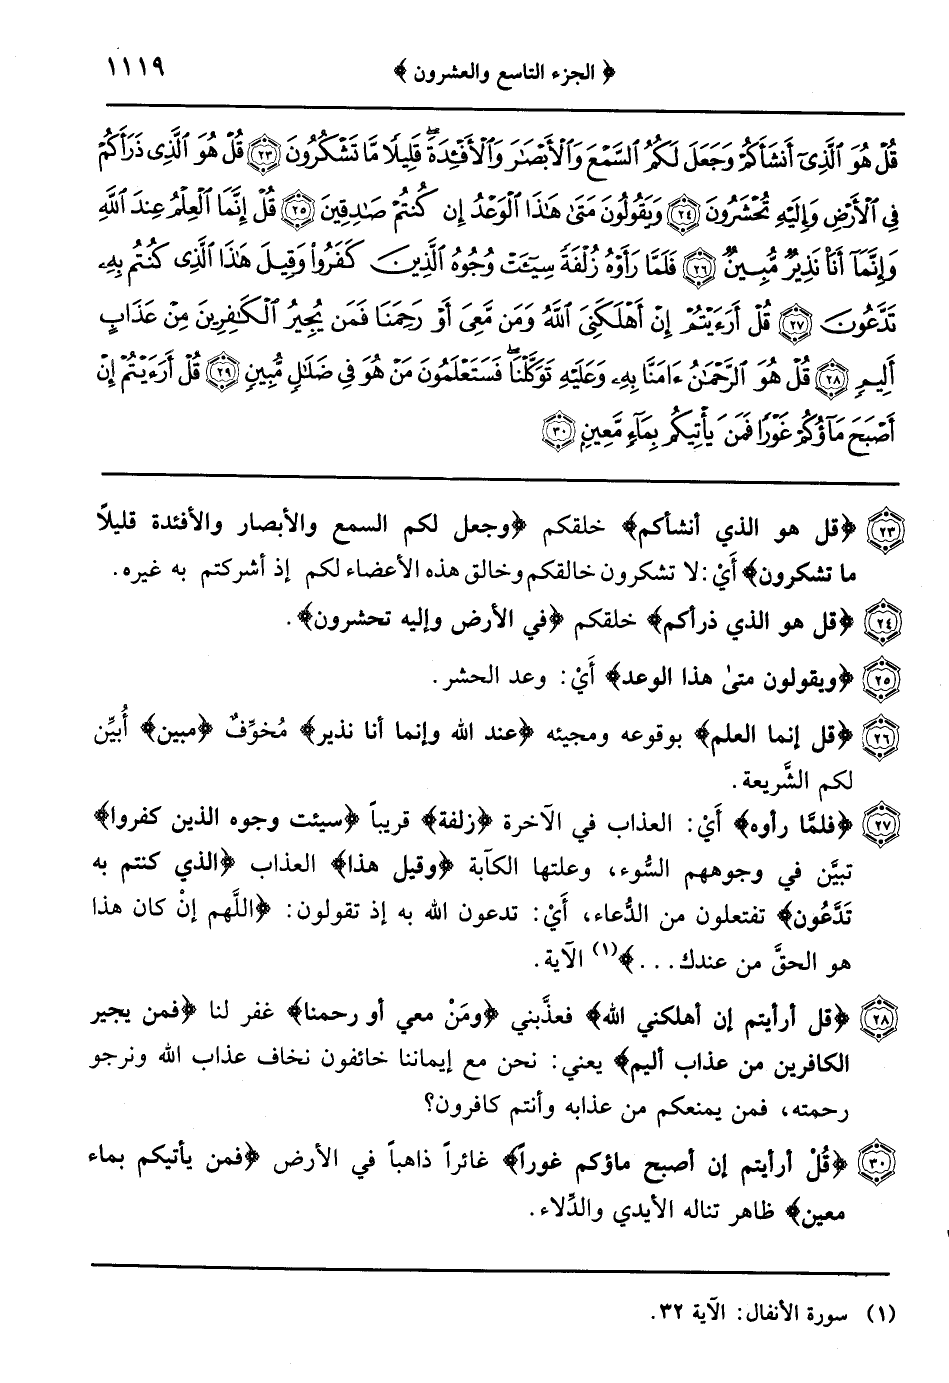 ﴿ الجزء التاسع والعشرون ﴾ ١١١٩
قُلْ هُوَ ٱلَّذِىٓ أَنشَأَكُمْ وَجَعَلَ لَكُمُ ٱلسَّمْعَ وَٱلْأَبْصَٰرَ وَٱلْأَفْـِٔدَةَۖ قَلِيلًا مَّا تَشْكُرُونَ ٢٣ قُلْ هُوَ ٱلَّذِى ذَرَأَكُمْ
فِى ٱلْأَرْضِ وَإِلَيْهِ تُحْشَرُونَ ٢٤ وَيَقُولُونَ مَتَىٰ هَٰذَا ٱلْوَعْدُ إِن كُنتُمْ صَٰدِقِينَ ٢٥ قُلْ إِنَّمَا ٱلْعِلْمُ عِندَ ٱللَّهِ
وَإِنَّمَآ أَنَا۠ نَذِيرٌ مُّبِينٌ ٢٦ فَلَمَّا رَأَوْهُ زُلْفَةً سِيٓـَٔتْ وُجُوهُ ٱلَّذِينَ كَفَرُوا۟ وَقِيلَ هَٰذَا ٱلَّذِى كُنتُم بِهِۦ
تَدَّعُونَ ٢٧ قُلْ أَرَءَيْتُمْ إِنْ أَهْلَكَنِىَ ٱللَّهُ وَمَن مَّعِىَ أَوْ رَحِمَنَا فَمَن يُجِيرُ ٱلْكَٰفِرِينَ مِنْ عَذَابٍ
أَلِيمٍ ٢٨ قُلْ هُوَ ٱلرَّحْمَٰنُ ءَامَنَّا بِهِۦ وَعَلَيْهِ تَوَكَّلْنَاۖ فَسَتَعْلَمُونَ مَنْ هُوَ فِى ضَلَٰلٍ مُّبِينٍ ٢٩ قُلْ أَرَءَيْتُمْ إِنْ
أَصْبَحَ مَآؤُكُمْ غَوْرًا فَمَن يَأْتِيكُم بِمَآءٍ مَّعِينٍۭ ٣٠
٢٣ ﴿قل هو الذي أنشأكم﴾ خلقكم ﴿وجعل لكم السمع والأبصار والأفئدة قليلاً
ما تشكرون﴾ أَيْ: لا تشكرون خالقكم وخالق هذه الأعضاء لكم إذ أشركتم به غيره.
٢٤ ﴿قل هو الذي ذرأكم﴾ خلقكم ﴿في الأرض وإليه تحشرون﴾.
٢٥ ﴿ويقولون متىٰ هذا الوعد﴾ أَيْ: وعد الحشر.
٢٦ ﴿قل إنما العلم﴾ بوقوعه ومجيئه ﴿عند الله وإنما أنا نذير﴾ مُخوِّفٌ ﴿مبين﴾ أُبيِّن
لكم الشَّريعة.
٢٧ ﴿فلمَّا رأوه﴾ أَيْ: العذاب في الآخرة ﴿زلفة﴾ قريباً ﴿سيئت وجوه الذين كفروا﴾
تبيَّن في وجوههم السُّوء، وعلتها الكآبة ﴿وقيل هذا﴾ العذاب ﴿الذي كنتم به
تَدَّعُون﴾ تفتعلون من الدُّعاء، أَيْ: تدعون الله به إذ تقولون: ﴿اللَّهم إنْ كان هذا
هو الحقَّ من عندك...﴾(١) الآية.
٢٨ ﴿قل أرأيتم إن أهلكني الله﴾ فعذَّبني ﴿ومَنْ معي أو رحمنا﴾ غفر لنا ﴿فمن يجير
الكافرين من عذاب أليم﴾ يعني: نحن مع إيماننا خائفون نخاف عذاب الله ونرجو
رحمته، فمن يمنعكم من عذابه وأنتم كافرون؟
٣٠ ﴿قُلْ أرأيتم إن أصبح ماؤكم غوراً﴾ غائراً ذاهباً في الأرض ﴿فمن يأتيكم بماء
معين﴾ ظاهر تناله الأيدي والدِّلاء.
(١) سورة الأنفال: الآية ٣٢.